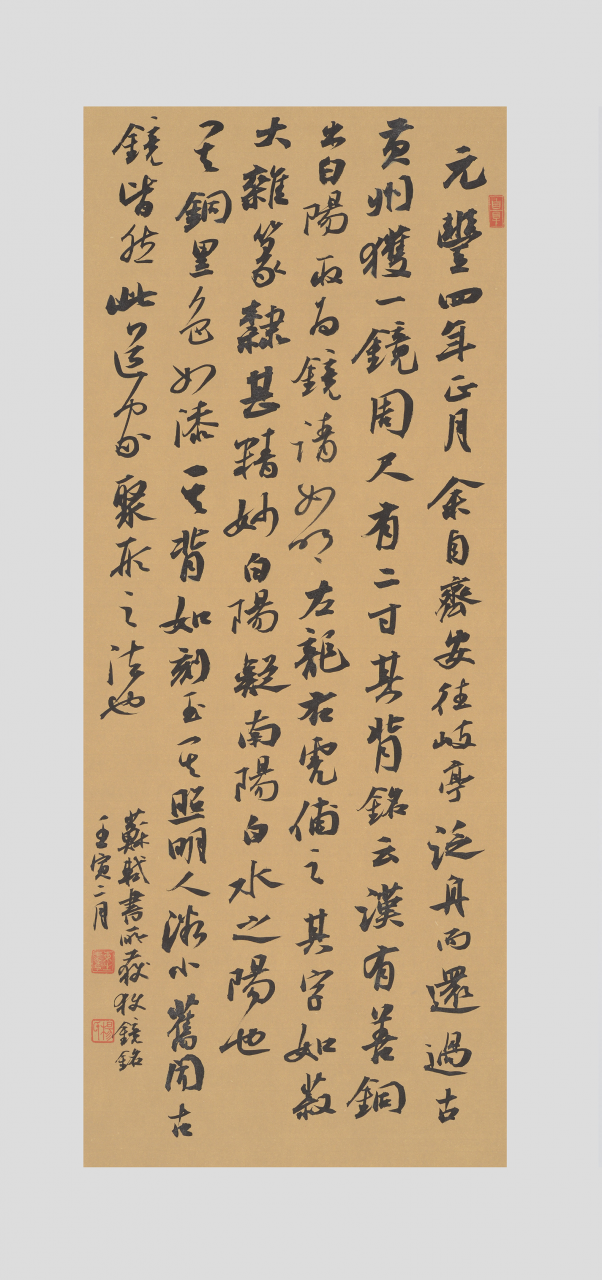 元豐四年正月余自齊安往岐亭泛舟而還過古
黃州獲一鏡周尺有二寸其背銘云漢有善銅
出白陽取為鏡清如明左龍右虎俌之其字如菽
大雜篆隸甚精妙白陽疑南陽白水之陽也
其銅黑色如漆其背如刻玉其照明人微小舊聞古
鏡皆然此道家聚形之法也
蘇軾書所獲鏡銘
壬寅二月